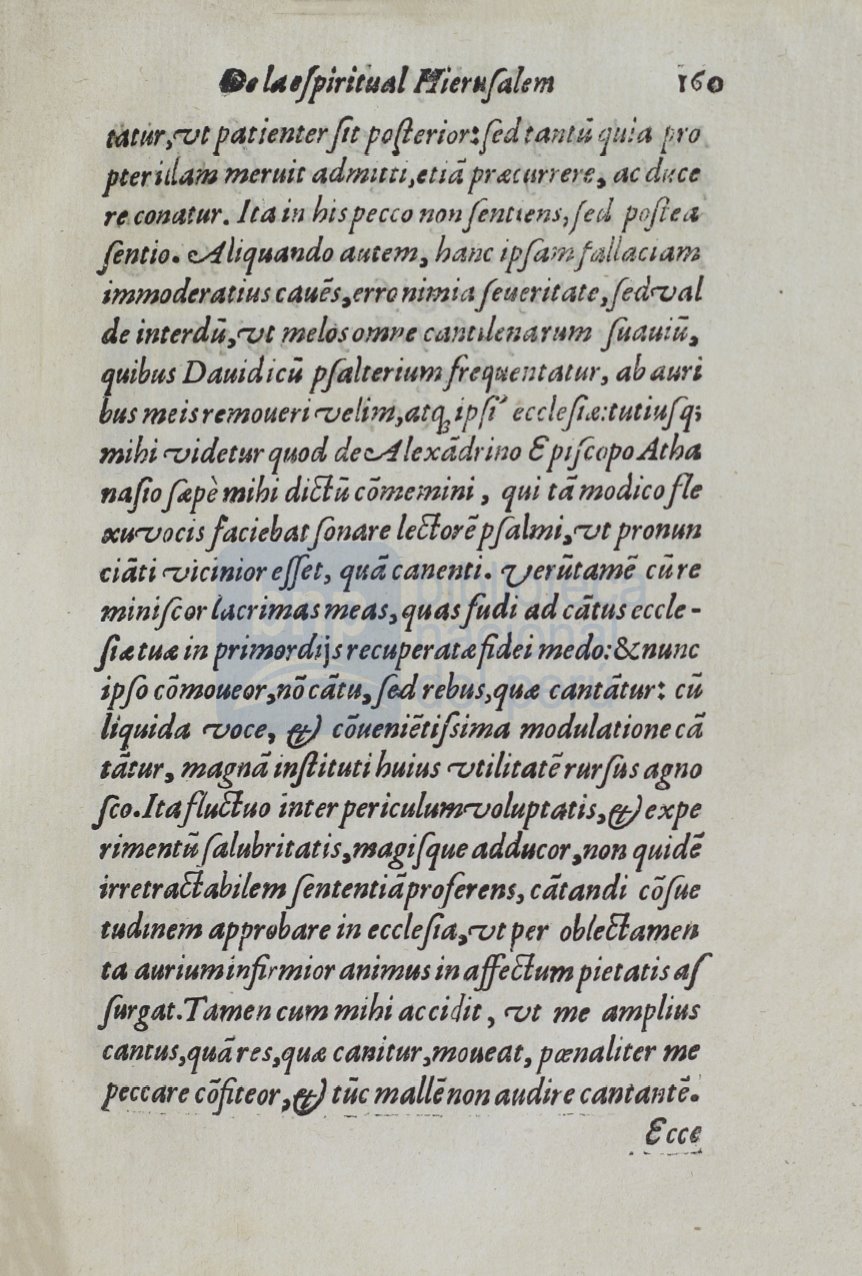 De la eſpiritual Hieruſalem 160
tatur, vt patienter ſit poſterior: ſed tantũ quia pro
pter illam meruit admitti, etiã præcurrere, ac duce
re conatur. Ita in his pecco non ſentiens, ſed poſtea
ſentio. Aliquando autem, hanc ipſam fallaciam
immoderatius cauẽs, erro nimia ſeueritate, ſed val
de interdũ, vt melos omne cantilenarum ſuauiũ,
quibus Dauidicũ pſalterium frequentatur, ab auri
bus meis remoueri velim, atq; ipſiꝰ eccleſiæ: tutiuſq;
mihi videtur quod de Alexãdrino Epiſcopo Atha
naſio ſæpè mihi dictũ cõmemini, qui tã modico fle
xu vocis faciebat ſonare lectorẽ pſalmi, vt pronun
ciãti vicinior eſſet, quã canenti. Verũtamẽ cũ re
miniſcor lacrimas meas, quas fudi ad cãtus eccle-
ſiæ tuæ in primordijs recuperatæ fidei medo: & nunc
ipſo cõmoueor, nõ cãtu, ſed rebus, quæ cantãtur: cũ
liquida voce, & cõueniẽtiſsima modulatione cã
tãtur, magnã inſtituti huius vtilitatẽ rurſus agno
ſco. Ita fluctuo inter periculum voluptatis, & expe
rimentũ ſalubritatis, magiſque adducor, non quidẽ
irretractabilem ſententiã proferens, cãtandi cõſue
tudinem approbare in eccleſia, vt per oblectamen
ta aurium infirmior animus in affectum pietatis aſ
ſurgat. Tamen cum mihi accidit, vt me amplius
cantus, quã res, quæ canitur, moueat, pœnaliter me
peccare cõfiteor, & tũc mallẽ non audire cantantẽ.
Ecce
biblioteca
nacional
de españa